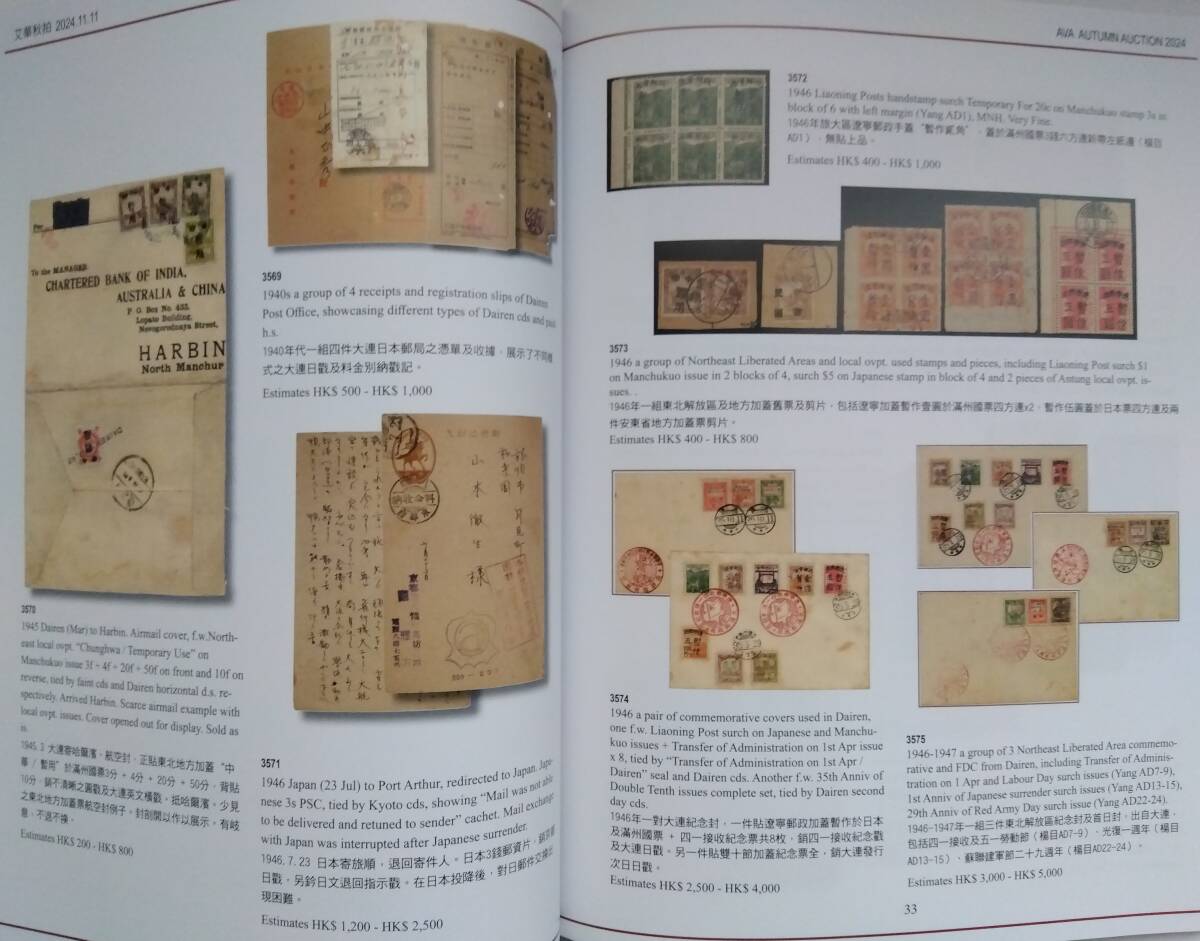 艾華秋拍 2024.11.11
To the MANAGER
CHARTERED BANK OF INDIA,
AUSTRALIA & CHINA
P. O. Box No. 455.
Lopato Building,
Novogorodnaya Street,
HARBIN
North Manchur
3569
1940s a group of 4 receipts and registration slips of Dairen
Post Office, showcasing different types of Dairen cds and paid
h.s.
1940年代一組四件大連日本郵局之憑單及收據，展示了不同樣
式之大連日戳及料金別納戳記。
Estimates HK$ 500 - HK$ 1,000
3570
1945 Dairen (Mar) to Harbin. Airmail cover, f.w.North-
east local ovpt. “Chunghwa / Temporary Use” on
Manchukuo issue 3f + 4f + 20f + 50f on front and 10f on
reverse, tied by faint cds and Dairen horizontal d.s. re-
spectively. Arrived Harbin. Scarce airmail example with
local ovpt. issues. Cover opened out for display. Sold as
is.
1945. 3 大連寄哈爾濱，航空封，正貼東北地方加蓋“中
華 / 暫用”於滿州國票3分 + 4分 + 20分 + 50分，背貼
10分，銷不清晰之圓戳及大連英文橫戳，抵哈爾濱。少見
之東北地方加蓋票航空封例子。封剖開以作以展示。有歧
意，不退不換。
Estimates HK$ 200 - HK$ 800
山本徹生様
3571
1946 Japan (23 Jul) to Port Arthur, redirected to Japan. Japa-
nese 3s PSC, tied by Kyoto cds, showing “Mail was not able
to be delivered and retuned to sender” cachet. Mail exchange
with Japan was interrupted after Japanese surrender.
1946. 7. 23 日本寄旅順，退回寄件人。日本3錢郵資片，銷京都
日戳，另鈐日文退回指示戳。在日本投降後，對日郵件交換出
現困難。
Estimates HK$ 1,200 - HK$ 2,500
AVA AUTUMN AUCTION 2024
3572
1946 Liaoning Posts handstamp surch Temporary For 20c on Manchukuo stamp 3s in
block of 6 with left margin (Yang AD1), MNH. Very Fine.
1946年旅大區遼寧郵政手蓋“暫作貳角”，蓋於滿州國票3錢六方連新帶左紙邊（楊目
AD1），無貼上品。
Estimates HK$ 400 - HK$ 1,000
3573
1946 a group of Northeast Liberated Areas and local ovpt. used stamps and pieces, including Liaoning Post surch $1
on Manchukuo issue in 2 blocks of 4, surch $5 on Japanese stamp in block of 4 and 2 pieces of Antung local ovpt. is-
sues. .
1946年一組東北解放區及地方加蓋舊票及剪片，包括遼寧加蓋暫作壹圓於滿州國票四方連x2，暫作伍圓蓋於日本票四方連及兩
件安東省地方加蓋票剪片。
Estimates HK$ 400 - HK$ 800
3574
1946 a pair of commemorative covers used in Dairen,
one f.w. Liaoning Post surch on Japanese and Manchu-
kuo issues + Transfer of Administration on 1st Apr issue
x 8, tied by “Transfer of Administration on 1st Apr /
Dairen” seal and Dairen cds. Another f.w. 35th Anniv of
Double Tenth issues complete set, tied by Dairen second
day cds.
1946年一對大連紀念封，一件貼遼寧郵政加蓋暫作於日本
及滿州國票 + 四一接收紀念票共8枚，銷四一接收紀念戳
及大連日戳。另一件貼雙十節加蓋紀念票全，銷大連發行
次日日戳。
Estimates HK$ 2,500 - HK$ 4,000
3575
1946-1947 a group of 3 Northeast Liberated Area commemo-
rative and FDC from Dairen, including Transfer of Adminis-
tration on 1 Apr and Labour Day surch issues (Yang AD7-9),
1st Anniv of Japanese surrender surch issues (Yang AD13-15),
29th Anniv of Red Army Day surch issue (Yang AD22-24).
1946-1947年一組三件東北解放區紀念封及首日封，出自大連，
包括四一接收及五一勞動節（楊目AD7-9）、光復一週年（楊目
AD13-15）、蘇聯建軍節二十九週年（楊目AD22-24）。
Estimates HK$ 3,000 - HK$ 5,000
33